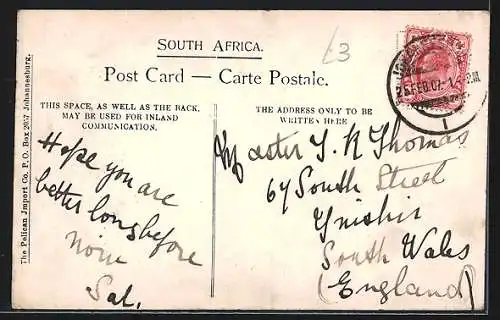 SOUTH AFRICA.
£3
Post Card — Carte Postale.
THIS SPACE, AS WELL AS THE BACK,
MAY BE USED FOR INLAND
COMMUNICATION.
THE ADDRESS ONLY TO BE
WRITTEN HERE
Hope you are
better long before
now
Sal.
Master T. R Thomas
67 South Street
Ynishir
South Wales
(England)
The Pelican Import Co. P. O. Box 2057 Johannesburg.
25 FEB 07
1